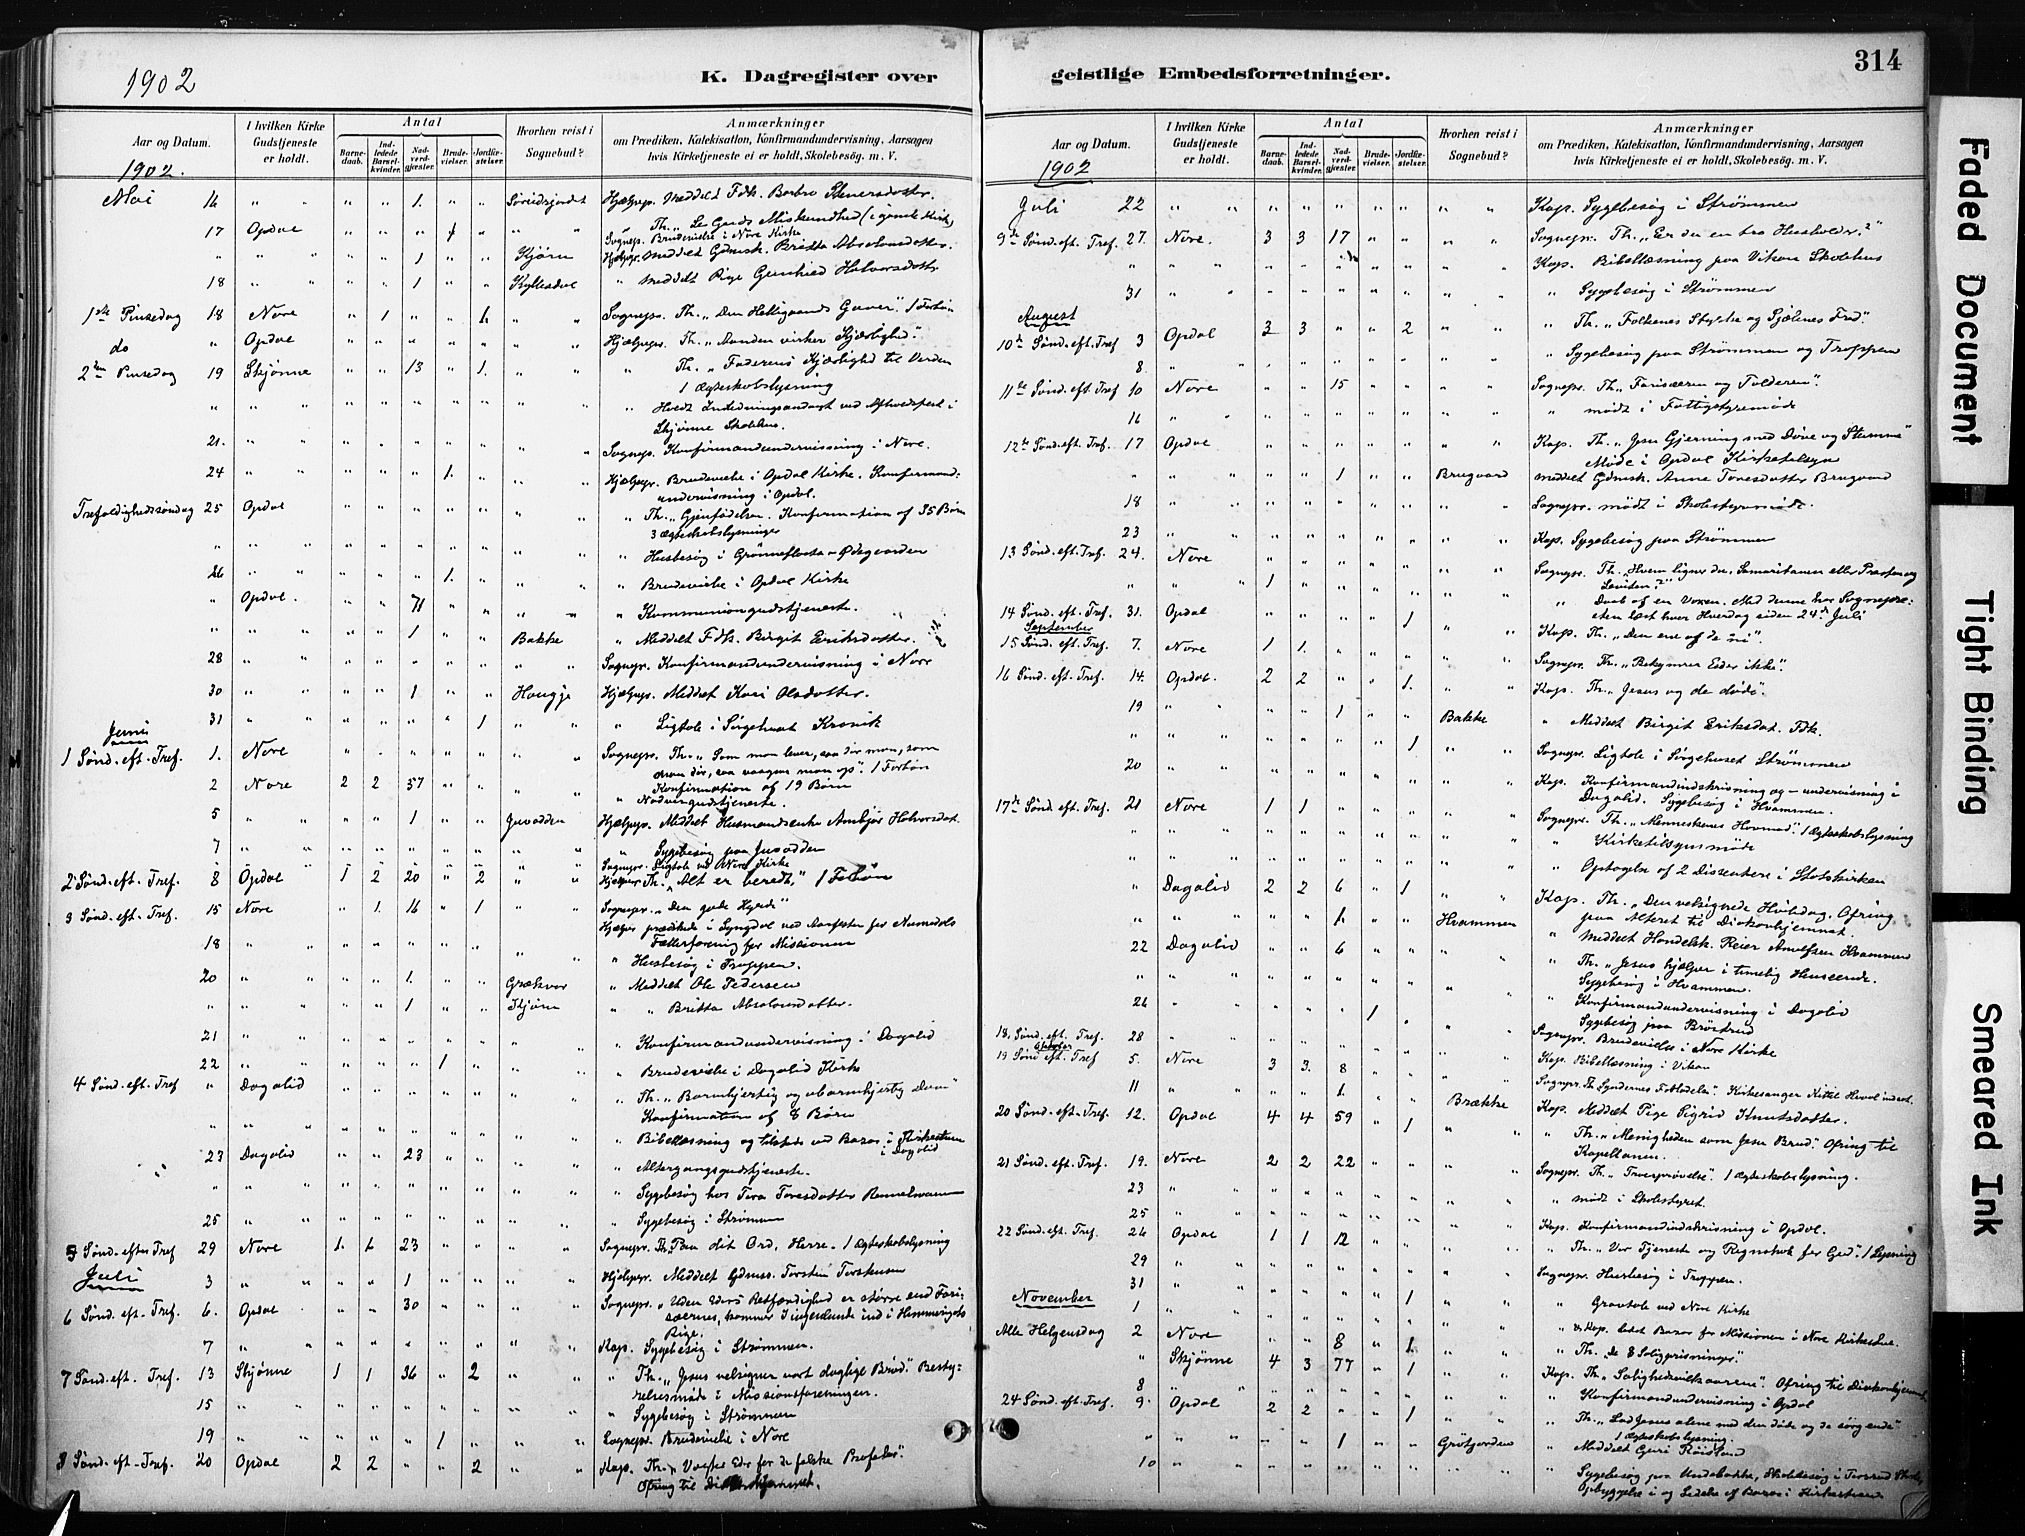 1902
K. Dagregister over
Aar og Datum.
I hvilken Kirke Gudstjeneste er holdt.
Antal
Barnedaab.
Indledede Barselkvinder.
Nadverdgjester.
Brudevielser.
Jordfæstelser.
Hvorhen reist i Sognebud?
Anmærkninger
om Prædiken, Katekisation, Konfirmandundervisning, Aarsagen
hvis Kirketjeneste ei er holdt, Skolebesög. m. V.
1902.
Mai 16 " " " " 1. " " Hjælpepr. Meddelt Fdk. Barbro
17 Opdal " " " 1 "
Sognepr. Brudevielse i Nore Kirke
" " " " " 1 " " Kjörn Hjælpepr. meddelt Gdmsk. Britta Absalonsdotter.
18 " " " " 1 " " " meddelt Pige Gunhild Halvorsdotter
1ste Pinsedag 18 Nore " 1 " " 1. " " Sognepr. Th. "Den Helligaands Gaver". 1 Forbön
do " Opdal " " " " " " " Hjælpepr. Th. "Aanden virker Kjærlighed".
2den Pinsedag 19 Skjönne " " 13 " 1. " " " Th. "Faderens Kjærlighed til Verden
1 Ægteskabslysning
" " " " " " " " " " Holdt Indledningsandagt ved Afholdsfest i
Skjönne Skolehus.
21. " " " " " " " " " Sognepr. Konfirmandundervisning i Nore.
24 " " " " " 1. " " " Hjælpepr. Brudevielse i Opdal Kirke. Konfirmand-
undervisning i Opdal.
Trefoldighedssöndag 25 Opdal " " " " " " " " Th. "Gjenfödelsen. Konfirmation af 35 Börn
3 Ægteskabslysninger
" " " " " " " " " " " Husbesög i Grönneflaata - Ödegaarden
26 " " " " " 1. " " " " Brudevielse i Opdal Kirke
" Opdal. " " 71 " " " " " Kommuniongudstjeneste.
" " " " " 1 " " Bakke " Meddelt Fdk. Birgit Eriksdotter.
28 " " " " " " " " " Sognepr. Konfirmandundervisning i Nore
30 " " " " 1 " " Haugje Hjælpepr. Meddelt Kari Olsdotter.
31 " " " " " " 1 " " " Ligtale i Sörgehuset Kravik
Juni
1 Sönd. eft. Tref. 1. Nore " " " " " " " Sognepr. Th. "Som man lever, saa dör man, som
man dör, saa vaagner man op". 1 Forbön
Konfirmation af 19 Börn
2 Nore 2 2 57 " " " " " Nadvergudstjeneste.
5 " " " " 1 " " Juvodden Hjælpepr. Meddelt Husmandsenke Ambjör Halvorsdat.
7 " " " " " " " " " " Sygebesög paa Juvodden
Sognepr. Ligtale ved Nore Kirke
2 Sönd. eft. Tref. 8 Opdal 1 2 20 " 2 " " Hjælpepr. Th. "Alt er beredt," 1 Forbön
3 Sönd. eft. Tref. 15 Nore " 1. 16 " 1 " " Sognepr. "Den gode Hyrde"
Hjælpepr. prædikede i Lyngdal ved Aarsfesten for Numedals
Fællesforening for Missionen
18 " " " " " " " " " " Husbesög i Troppen.
20 " " " " 1. " " Grækvor " Meddelt Ole Pedersen
" " " " " 1 " " Kjörn " " Britta Absalonsdotter.
21 " " " " " " " " " " Konfirmandundervisning i Dagalid
22 " " " " " 1 " " " " Brudevielse i Dagalid Kirke
4 Sönd. eft. Tref " Dagalid " " " " " " " " Th. "Barmhjertig og ubarmhjertig Dom"
Konfirmation af 8 Börn
" " " " " " " " " " Bibellæsning og tilstede ved Bazar i Kirkestuen
i Dagalid
23 Dagalid " " 23 " " " " " Altergangsgudstjeneste.
" " " " " " " " " " Sygebesög hos Tora Toresdotter
25 " " " " " " " " " " Sygebesög i Strömmen
5 Sönd. efter Tref 29 Nore 1. 1. 23 " " " " Sognepr. Th. "Paa dit Ord, Herre. 1 Ægteskabslysning
Juli
3 " " " " 1 " " " " Hjælpepr. Meddelt Gdmss. Torstein Torsteinsen
6 Sönd. eft. Tref. 6. Opdal " " 30 " " " " Sognepr. "Uden Eders Retfærdighed er större end Fari-
sæernes, kommer I ingenlunde ind i Himmeriges
Rige.
7 " " " " " " " " " Kap. Sygebesög i Strömmen.
7 Sönd. eft. Tref. 13 Skjönne 1 1 36 " 2 " " " Th. "Jesus velsigner vort daglige Bröd". Besty-
relsesmöde i Missionsforeningen.
15 " " " " " " " " " " Sygebesög i Strömmen
19 " " " " " 1 " " " Sognepr. Brudevielse i Nore
8 Sönd. eft. Tref. 20 Opdal 2 2 " " 2 " " Kap. Th. "Vogter Eder for de falske Profeter".
Ofring til Diakonhjemmet.
geistlige Embedsforretninger.
314
Aar og Datum.
I hvilken Kirke Gudstjeneste er holdt.
Antal
Barnedaab.
Indledede Barselkvinder.
Nadverdgjester.
Brudevielser.
Jordfæstelser.
Hvorhen reist i Sognebud?
Anmærkninger
om Prædiken, Katekisation, Konfirmandundervisning, Aarsagen
hvis Kirketjeneste ei er holdt, Skolebesög. m. V.
1902
Juli 22 " " " " " " " " " Kap. Sygebesög i Strömmen
9de Sönd. eft. Tref. 27. Nore. 3 3 17 " " " " Sognepr. Th. "Er du en tro Husholder?"
" " " " " " " " " Kap. Bibellæsning paa Vikan Skolehus
31 " " " " " " " " " " Sygebesög i Strömmen
August
10de Sönd. eft. Tref 3 Opdal 3 3 " " 2 " " " Th. "Folkenes Styrke og Sjælenes Fred".
8 " " " " " " " " " " Sygebesög paa Strömmen og Troppen
11te Sönd. eft. Tref 10 Nore " " 15 " " " " Sognepr. Th. "Farisæeren og Tolderen".
16 " " " " " " " " " " mödt i Fattigstyremöde
12te Sönd. eft. Tref. 17 Opdal " " " " " " " Kap. Th. "Jesu Gjerning med Döve og Stumme"
Möde i Opdal Kirketilsyn
" " " " " 1 " " Brugaard meddelt Gdmsk. Anne Toresdotter Brugaard
18 " " " " " " " " " Sognepr. mödt i Skolestyremöde.
23 " " " " " " " " " Kap. Sygebesög paa Strömmen
13 Sönd. eft. Tref. 24. Nore " " " " " " " Sognepr. Th. "Hvem ligner du, Samaritanen eller Presten og
Leviten?"
" " " 1 " " " " " " " Daab af en Voxen. Med denne har Sognepre-
sten læst hver Hverdag siden 24de Juli
14 Sönd. eft. Tref. 31. Opdal " " " " 1 " " Kap. Th. "Den ene af de ni".
September
15 Sönd. eft. Tref. 7. Nore 1 1. " " " " " Sognepr. Th. "Bekymrer Eder ikke".
16 Sönd. eft. Tref. 14. Opdal. 2 2 " " 1. " " Kap. Th. "Jesus og de döde".
19 " " " " 1 " " Bakke " Meddelt Birgit Eriksdat. Fdk.
" " " " " " " 1 " " Sognepr. Ligtale i Sörgehuset Strömmen
20 " " " " " " " " " Kap. Konfirmandindskrivning og - undervisning i
Dagalid. Sygebesög i Hvammen.
17de Sönd. eft. Tref. 21 Nore 1 1 " " " " " Sognepr. Th. "Menneskenes Hovmod". 1 Ægteskabslysning
" " " " " " " " " " " Kirketilsynsmöde
" " " " " " " " " " " Optagelse af 2 Dissentere i Statskirken
" Dagalid 2 2 6 " 1 " " Kap. Th. "Den velsignede Hviledag. Ofring
paa Alteret til Diakonhjemmet.
" " " " " 1. " " Hvammen " Meddelt Handelsk. Reier Hvammen
22 Dagalid " " 6 " " " " " Th. "Jesus hjælper i timelig Henseende.
Sygebesög i Hvammen.
" " " " " " " " " " Konfirmandundervisning i Dagalid
Sygebesög paa Bröstrud
26 " " " " " 1 " " " Sognepr. Brudevielse i Nore Kirke
18. Sönd. eft. Tref. 28 " " " " " " " " " Kap. Bibellæsning i Vikan
Oktober
19 Sönd. eft. Tref 5. Nore 3 3. 8 " " " " Sognepr. Th. "Syndernes Forladelse". Kirkesanger Kittil indsat.
11 " " " " 1. " " Brække Kap. Meddelt Pige Sigrid Knutsdotter.
20 Sönd. eft. Tref. 12. Opdal 4 4 59 " 1 " " " Th. "Menigheden som Jesu Brud". Ofring til
Kapellanen.
21 Sönd. eft. Tref. 19. Nore 2 2 22 " " " " Sognepr. Th. "Troesprövelse". 1 Ægteskabslysning.
23 " " " " " " " " " " mödt i Skolestyret.
25 " " " " " " " " " Kap. Konfirmandindskrivning i Opdal.
22 Sönd. eft. Tref. 26 Opdal 1 1 12 " " " " " Th. "Vor Tjeneste og Regnskab for Gud". 1 Lysning
29 " " " " " " " " " Sognepr. Husbesög i Troppen.
31 " " " " " " 1 " " " Gravtale ved Nore Kirke
November
1 " " " " " " " " " " Kap. ledet Bazar for Missionen i Nore Kirkestue.
Alle Helgensdag 2 Nore " " 8 " 1. " " " Th. "De 8 Saligprisninger."
" Skjönne 4 3 77 " 1 " " Kap. Th. "Salighedsvilkaarene". Ofring til Diakonhjemmet
8 " " " " " " " " " " Konfirmandundervisning i Opdal
24 Sönd. eft. Tref. 9. Opdal 2 2 " " 1 " " " Th. "Lad Jesus alene med den döde og de sörgende"
1 Ægteskabslysning.
" " " " " 1 " " " Meddelt Guri
10 " " " " " " " " " " Sygebesög paa Skolebesög i
Opbyggelse i og Ledelse af Bazar i Kirkestuen
Faded Document
Tight Binding
Smeared Ink